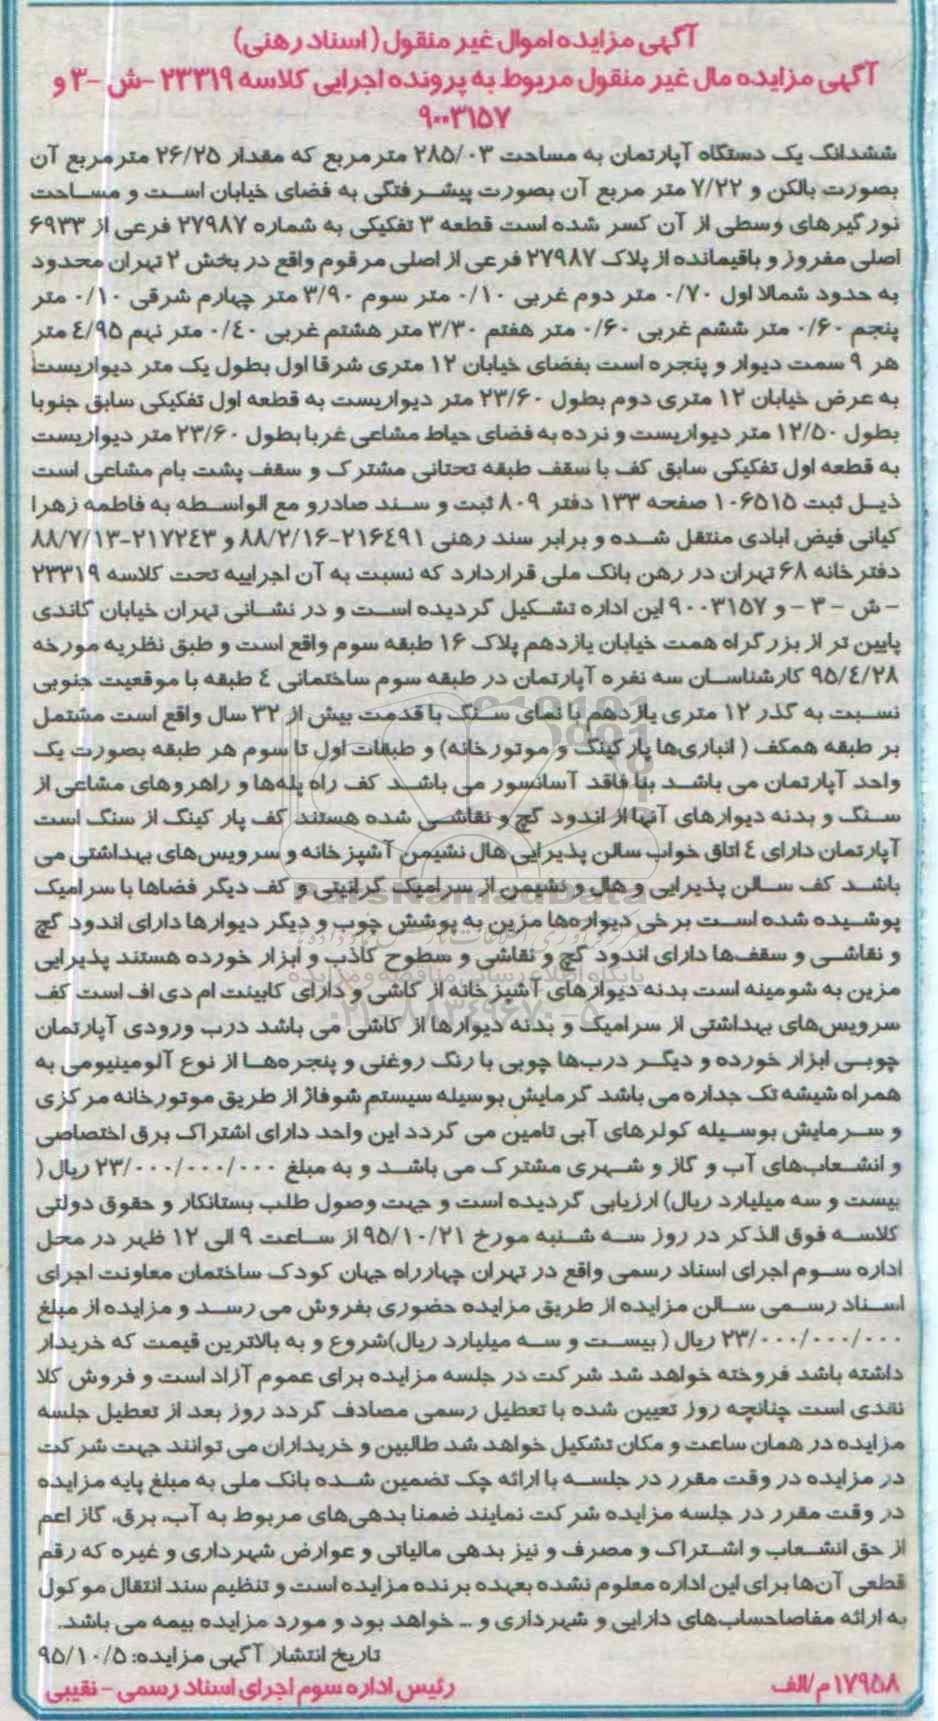 آگهی مزایده اموال غیر منقول (اسناد رهنی)
آگهی مزایده مال غیر منقول مربوط به پرونده اجرایی کلاسه ۲۳۳۱۹ -ش -۳ و
۹۰۰۳۱۵۷
ششدانگ یک دستگاه آپارتمان به مساحت ۲۸۵/۰۳ مترمربع که مقدار ۲۶/۲۵ مترمربع آن
بصورت بالکن و ۷/۲۲ متر مربع آن بصورت پیشرفتگی به فضای خیابان است و مساحت
نورگیرهای وسطی از آن کسر شده است قطعه ۳ تفکیکی به شماره ۲۷۹۸۷ فرعی از ۶۹۳۳
اصلی مفروز و باقیمانده از پلاک ۲۷۹۸۷ فرعی از اصلی مرقوم واقع در بخش ۲ تهران محدود
به حدود شمالا اول ۰/۷۰ متر دوم غربی ۰/۱۰ متر سوم ۳/۹۰ متر چهارم شرقی ۰/۱۰ متر
پنجم ۰/۶۰ متر ششم غربی ۰/۶۰ متر هفتم ۳/۳۰ متر هشتم غربی ۰/۴۰ متر نهم ۴/۹۵ متر
هر ۹ سمت دیوار و پنجره است بفضای خیابان ۱۲ متری شرقا اول بطول یک متر دیواریست
به عرض خیابان ۱۲ متری دوم بطول ۲۳/۶۰ متر دیواریست به قطعه اول تفکیکی سابق جنوبا
بطول ۱۲/۵۰ متر دیواریست و نرده به فضای حیاط مشاعی غربا بطول ۲۳/۶۰ متر دیواریست
به قطعه اول تفکیکی سابق کف با سقف طبقه تحتانی مشترک و سقف پشت بام مشاعی است
ذیل ثبت ۱۰۶۵۱۵ صفحه ۱۳۳ دفتر ۸۰۹ ثبت و سند صادرو مع الواسطه به فاطمه زهرا
کیانی فیض ابادی منتقل شده و برابر سند رهنی ۲۱۶۴۹۱-۸۸/۲/۱۶ و ۲۱۷۲۴۳-۸۸/۷/۱۳
دفترخانه ۶۸ تهران در رهن بانک ملی قراردارد که نسبت به آن اجراییه تحت کلاسه ۲۳۳۱۹
- ش - ۳ - و ۹۰۰۳۱۵۷ این اداره تشکیل گردیده است و در نشانی تهران خیابان گاندی
پایین تر از بزرگراه همت خیابان یازدهم پلاک ۱۶ طبقه سوم واقع است و طبق نظریه مورخه
۹۵/۴/۲۸ کارشناسان سه نفره آپارتمان در طبقه سوم ساختمانی ۴ طبقه با موقعیت جنوبی
نسبت به گذر ۱۲ متری یازدهم با نمای سنگ با قدمت بیش از ۳۲ سال واقع است مشتمل
بر طبقه همکف ( انباری‌ها پارکینگ و موتورخانه) و طبقات اول تا سوم هر طبقه بصورت یک
واحد آپارتمان می باشد بنا فاقد آسانسور می باشد کف راه پله‌ها و راهروهای مشاعی از
سنگ و بدنه دیوارهای آنها از اندود گچ و نقاشی شده هستند کف پارکینگ از سنگ است
آپارتمان دارای ۴ اتاق خواب سالن پذیرایی هال نشیمن آشپزخانه و سرویس‌های بهداشتی می
باشد کف سالن پذیرایی و هال و نشیمن از سرامیک گرانیتی و کف دیگر فضاها با سرامیک
پوشیده شده است برخی دیواره‌ها مزین به پوشش چوب و دیگر دیوارها دارای اندود گچ
و نقاشی و سقف‌ها دارای اندود گچ و نقاشی و سطوح کاذب و ابزار خورده هستند پذیرایی
مزین به شومینه است بدنه دیوارهای آشپزخانه از کاشی و دارای کابینت ام دی اف است کف
سرویس‌های بهداشتی از سرامیک و بدنه دیوارها از کاشی می باشد درب ورودی آپارتمان
چوبی ابزار خورده و دیگر درب‌ها چوبی با رنگ روغنی و پنجره‌ها از نوع آلومینیومی به
همراه شیشه تک جداره می باشد گرمایش بوسیله سیستم شوفاژ از طریق موتورخانه مرکزی
و سرمایش بوسیله کولرهای آبی تامین می گردد این واحد دارای اشتراک برق اختصاصی
و انشعاب‌های آب و گاز و شهری مشترک می باشد و به مبلغ ۲۳/۰۰۰/۰۰۰/۰۰۰ ریال (
بیست و سه میلیارد ریال) ارزیابی گردیده است و جهت وصول طلب بستانکار و حقوق دولتی
کلاسه فوق الذکر در روز سه شنبه مورخ ۹۵/۱۰/۲۱ از ساعت ۹ الی ۱۲ ظهر در محل
اداره سوم اجرای اسناد رسمی واقع در تهران چهارراه جهان کودک ساختمان معاونت اجرای
اسناد رسمی سالن مزایده از طریق مزایده حضوری بفروش می رسد و مزایده از مبلغ
۲۳/۰۰۰/۰۰۰/۰۰۰ ریال ( بیست و سه میلیارد ریال)شروع و به بالاترین قیمت که خریدار
داشته باشد فروخته خواهد شد شرکت در جلسه مزایده برای عموم آزاد است و فروش کلا
نقدی است چنانچه روز تعیین شده با تعطیل رسمی مصادف گردد روز بعد از تعطیل جلسه
مزایده در همان ساعت و مکان تشکیل خواهد شد طالبین و خریداران می توانند جهت شرکت
در مزایده در وقت مقرر در جلسه با ارائه چک تضمین شده بانک ملی به مبلغ پایه مزایده
در وقت مقرر در جلسه مزایده شرکت نمایند ضمنا بدهی‌های مربوط به آب، برق، گاز اعم
از حق انشعاب و اشتراک و مصرف و نیز بدهی مالیاتی و عوارض شهرداری و غیره که رقم
قطعی آن‌ها برای این اداره معلوم نشده بعهده برنده مزایده است و تنظیم سند انتقال موکول
به ارائه مفاصاحساب‌های دارایی و شهرداری و ... خواهد بود و مورد مزایده بیمه می باشد.
تاریخ انتشار آگهی مزایده: ۹۵/۱۰/۵
۱۷۹۵۸م/الف رئیس اداره سوم اجرای اسناد رسمی - نقیبی